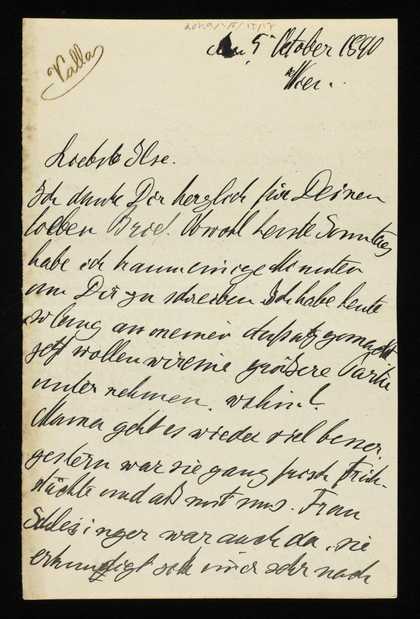 Valla
am 5 October 1890
Wien.
Liebste Ilse.
Ich danke Dir herzlich für Deinen
lieben Brief. Obwohl heute Sonntag
habe ich kaum einige Minuten
um Dir zu schreiben Ich habe heute
so lang an meinem Aufsatz gemacht
jetzt wollen wir eine größere Partie
unternehmen. wohin?
Mama geht es wieder viel besser,
gestern war sie ganz frisch Früh-
stückte und aß mit uns. Frau
Schlesinger war auch da, sie
erkundigt sich immer sehr nach